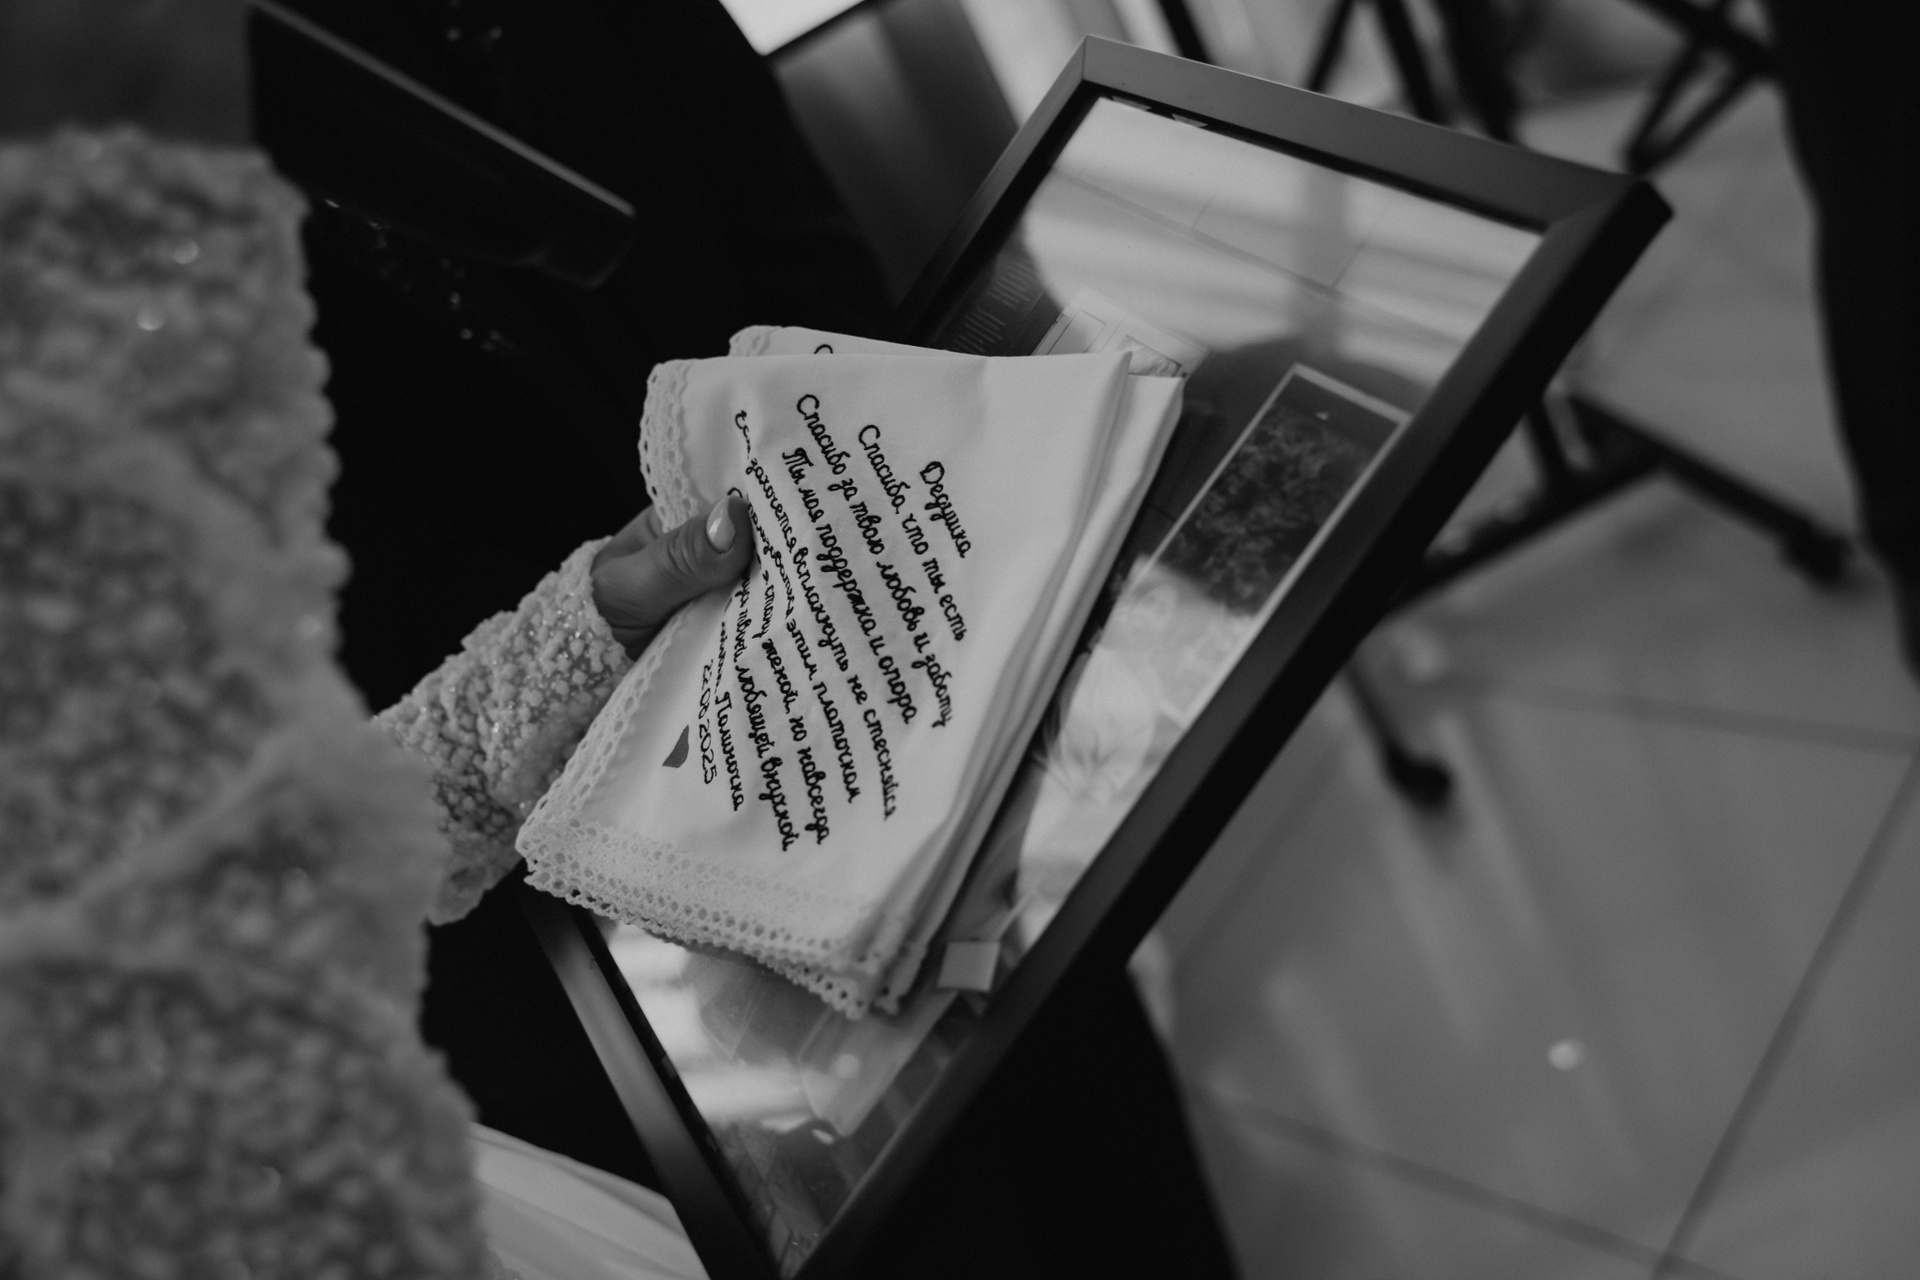 Дедушка
Спасибо, что ты есть
Спасибо за твою любовь и заботу
Ты моя поддержка и опора
Если захочется всплакнуть не стесняйся
этим платочком
я стану женой, но навсегда
твоей любящей внучкой
Полиночка
22.06.2025